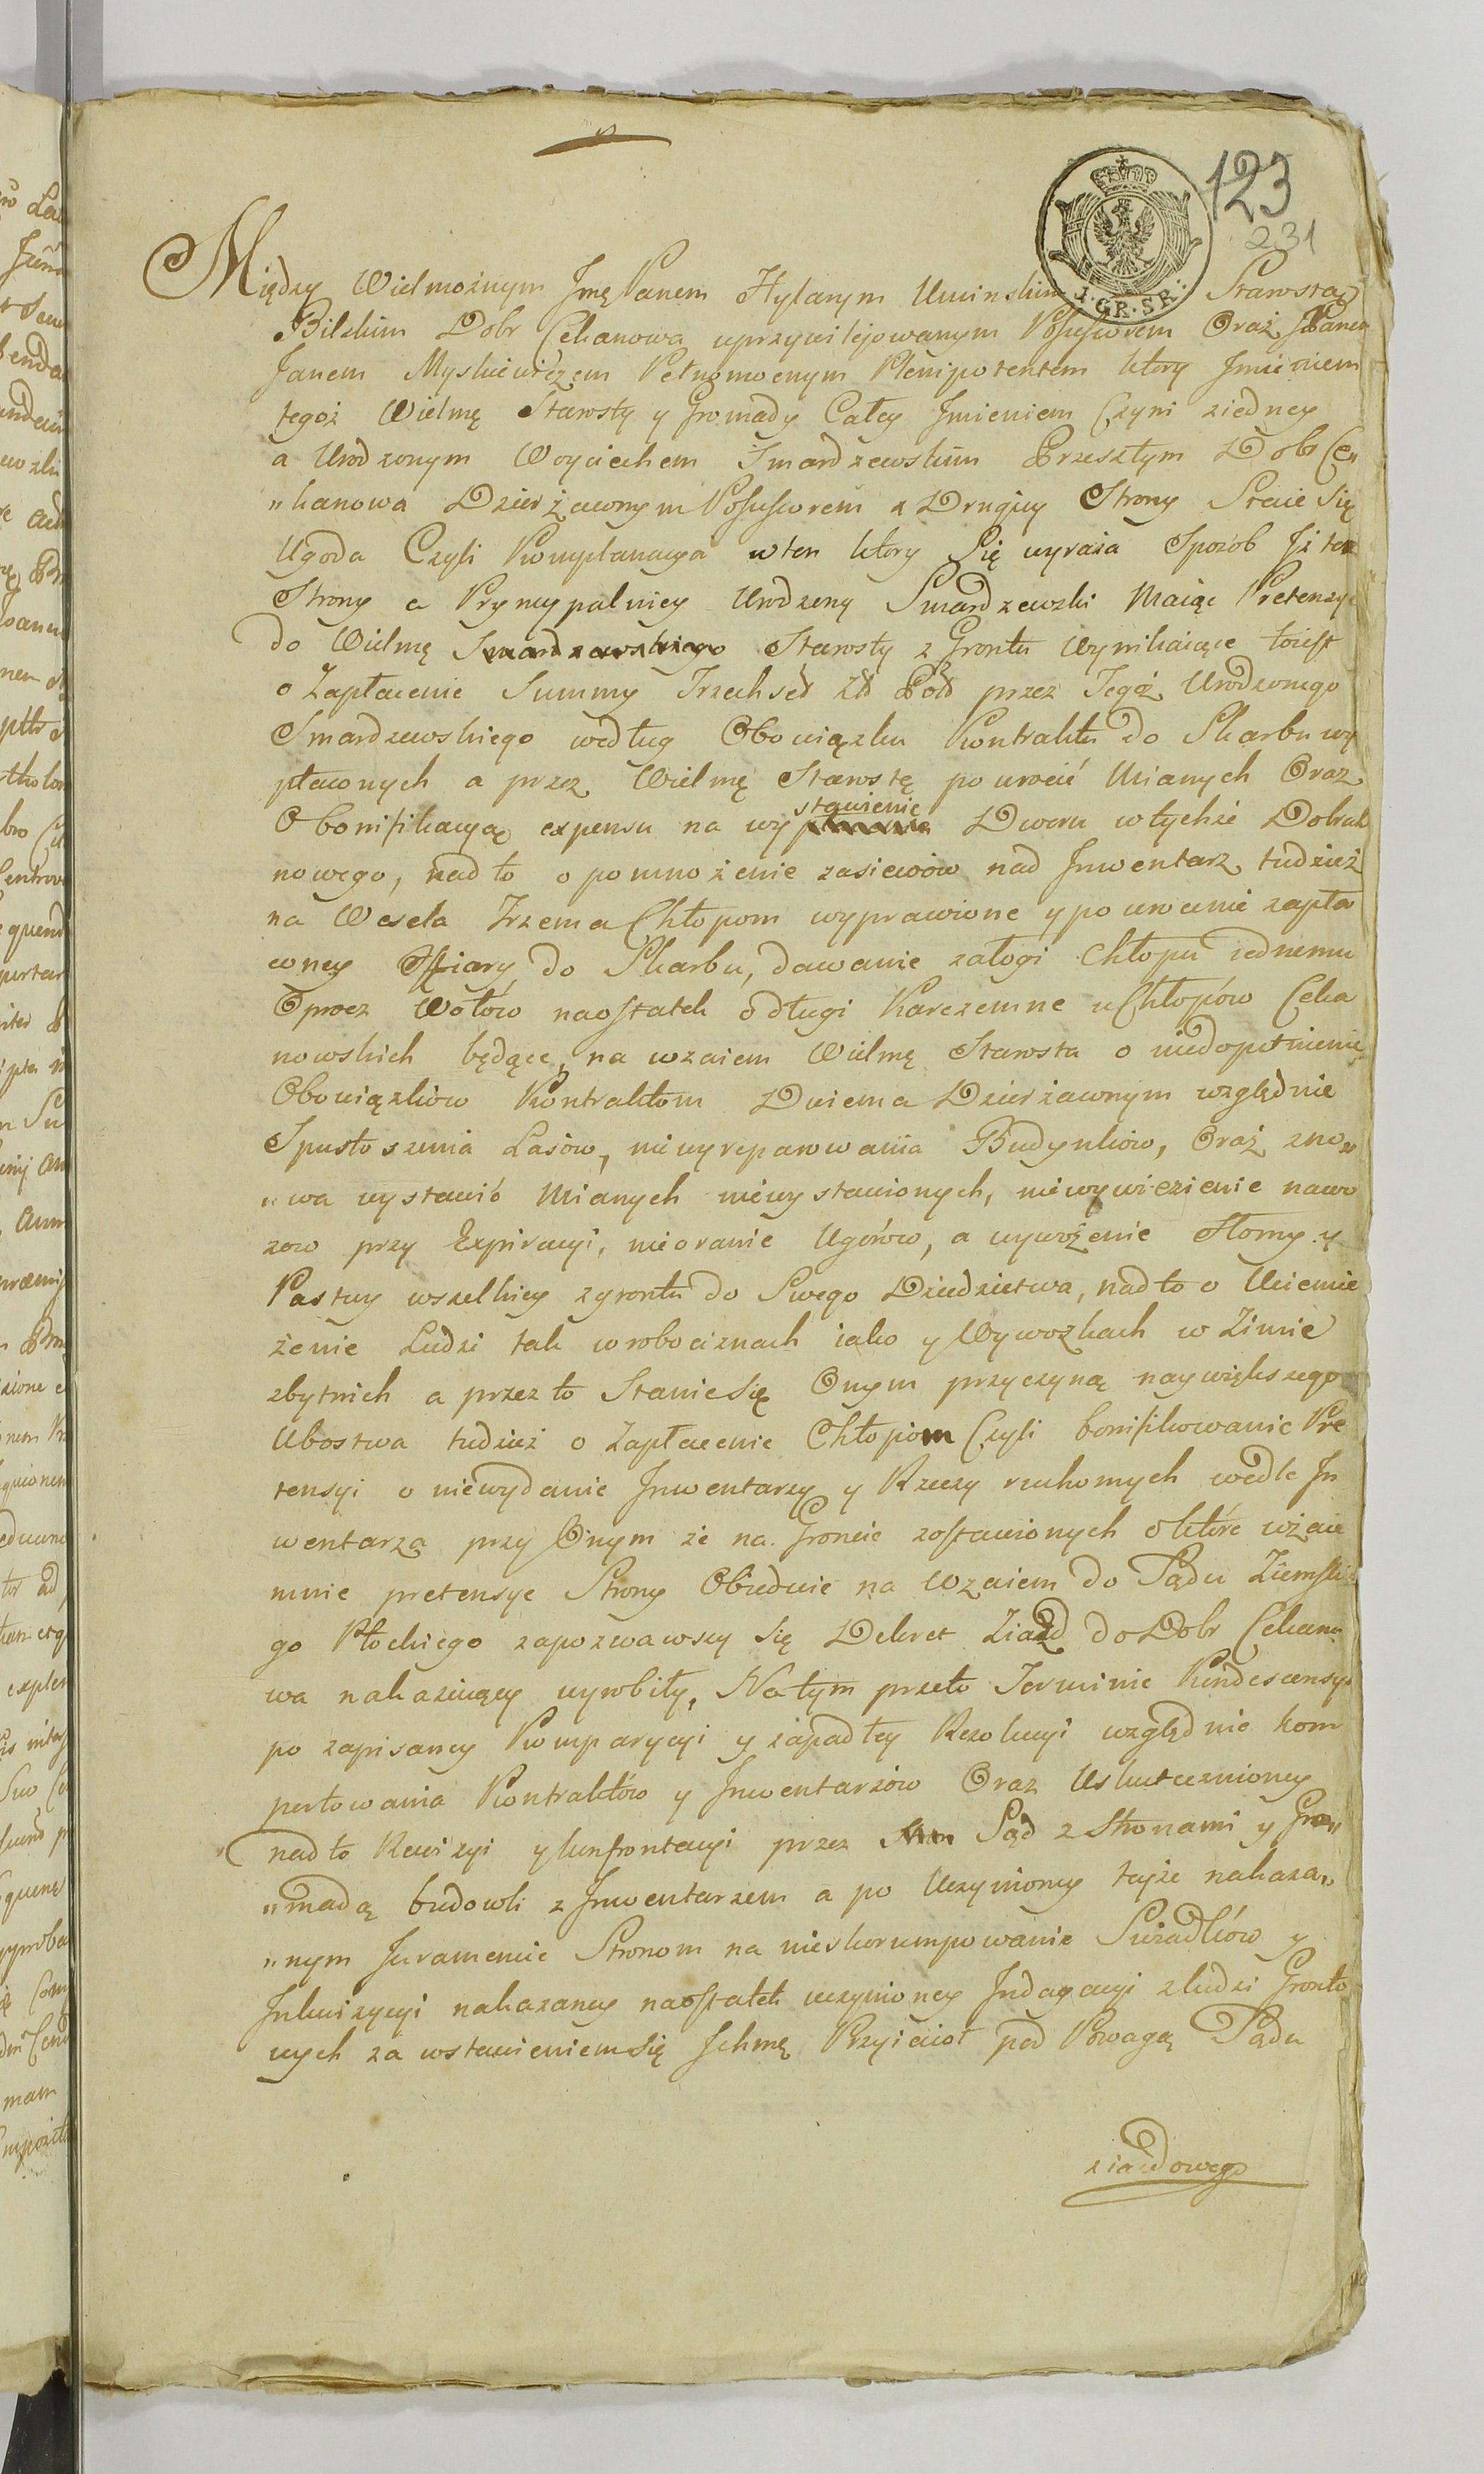 123
231
J. GR. SR.
Między Wielmożnym Jmę Panem Hylarym Uminskim Starostą
Bilskim Dobr Cekanowa uprzywilejowanym Possessorem Oraz JPanem
Janem Myskiewiczem Pełnomocnym Plenipotentem ktory Jmieniem
tegoż Wielmę Starosty y Gromady Całey Jmieniem Czyni ziedney
a Urodzonym Woyciechem Smardzewskim Przeszłym Dobr Ce„
„kanowa Dzierżawnym Possessorem z Drugiey Strony Staie Się
Ugoda Czyli Komplanacya wten ktory Się wyraża Sposob Jż te
Strony a Pryncypalniey Urodzony Smardzewski Maiąc Pretensye
do Wielmę Smardzewskiego Starosty z Grontu Wynikaiące toiest
o Zapłacenie Summy Trzechset Zł Pol przez Tegoż Urodzonego
Smardzewskiego według Obowiązku Kontraktu do Skarbu wy
płaconych a przez Wielmę Starostę powrocić Mianych Oraz
O bonifikacyą expensu na wystawienie Dworu wtychże Dobrach
nowego, nad to o pomnożenie zasiewów nad Jnwentarz tudzież
na Wesela Trzema Chłopom wyprawione y powrocenie zapła
coney Ofiary do Skarbu, dawanie załogi Chłopu iednemu
Oprocz Wołów naostatek o długi Karczemne u Chłopów Ceka
nowskich będące, na wzaiem Wielmę Starosta o niedopełnienie
Obowiązków Kontraktom Dwiema Dzierżawnym względnie
Spustoszenia Lasów, niewyreparowania Budynków, Oraz zno„
„wa wystawić Mianych niewystawionych, niewywiezienie nawo
zow przy Expiracyi, nieoranie Ugorów, a wywożenie Słomy y
Pastwy wszelkiey z grontu do Swego Dziedzictwa, nad to o Uciemię
żenie Ludzi tak w robociznach iako y Wywozkach w Zimie
zbytnich a przez to Stanie Się Onym przyczyną naywiększego
Ubostwa tudzież o Zapłacenie Chłopom Czyli bonifikowanie Pre
tensyi o niewydanie Jnwentarzy y Rzeczy ruchomych wedle Jn
wentarza przy Onym że na Groncie zostawionych o które wzaie
mnie pretensye Strony Obiedwie na Wzaiem do Sądu Ziemskie
go Płockiego zapozwawszy się Dekret Ziazd do Dobr Cekano
wa nakazuiący wyrobiły, Na tym przeto Terminie Kondescensyi
po zapisaney Komparycyi y zapadłey Rezolucyi względnie kom
portowania Kontraktów y Jnwentarzów Oraz Uskutecznioney
nad to Rewizyi y konfrontacyi przez Sąd z Stronami y Gro„
„madą budowli z Jnwentarzem a po Uczynioney teyże nakaza„
„nym Juramencie Stronom na nieskorumpowanie Swiadków y
Jnkwizycyi nakazaney naostatek uczynioney Jndagacyi z ludzi Gronto
wych za wstawieniem się Jchmę Przyiaciół pod Powagą Sądu
ziazdowego